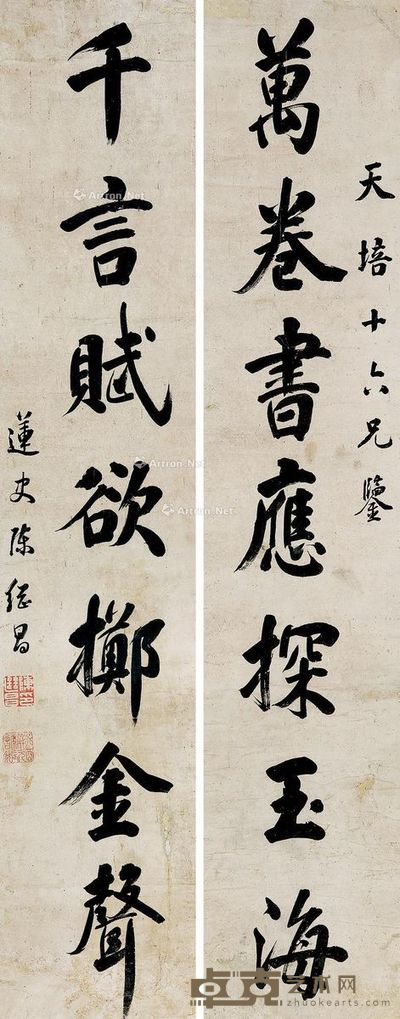 天培十六兄鑒
萬卷書應探玉海
千言賦欲擲金聲
蓮史陳繼昌
Artron.Net
Artron.Net
Artron.Net
Artron.Net
卓克艺术网
www.zhuokearts.com